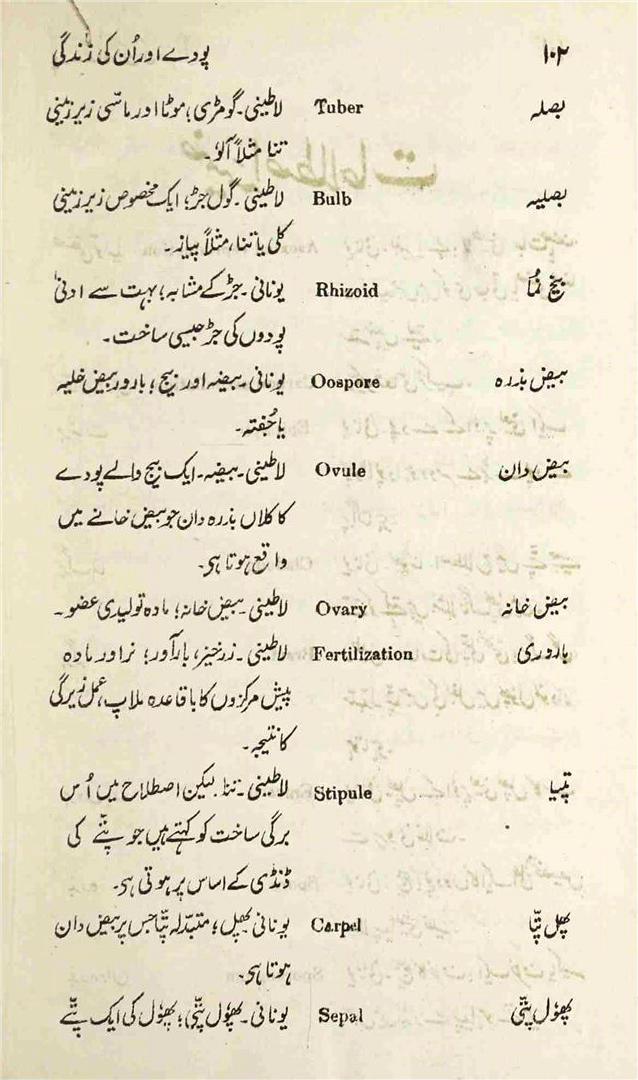 ۱۰۲ پودے اور اُن کی زندگی
بصلہ Tuber لاطینی۔ گومڑی؛ موٹا اور ماسّی زیر زمینی
تنا مثلاً آلو۔
بصلیہ Bulb لاطینی۔ گول جڑ؛ ایک مخصوص زیر زمینی
کلی یا تنا، مثلاً پیاز۔
بیخ نُما Rhizoid یونانی۔ جڑ کے مشابہ؛ بہت سے ادنیٰ
پودوں کی جڑ جیسی ساخت۔
بیض بذرہ Oospore یونانی۔ بیضہ اور بیج؛ بارور بیض خلیہ
یا جُفتہ۔
بیض دان Ovule لاطینی۔ بیضہ۔ ایک بیج والے پودے
کا کلاں بذرہ دان جو بیض خانے میں
واقع ہوتا ہی۔
بیض خانہ Ovary لاطینی۔ بیض خانہ؛ مادہ تولیدی عضو۔
باروری Fertilization لاطینی۔ زرخیز، بارآور؛ نر اور مادہ
پیش مرکزوں کا باقاعدہ ملاپ، عمل زیرگی
کا نتیجہ۔
پتیا Stipule لاطینی۔ تنا لیکن اصطلاح میں اُس
برگی ساخت کو کہتے ہیں جو پتّے کی
ڈنڈی کے اساس پر ہوتی ہی۔
پھل پتّا Carpel یونانی پھل؛ متبدّلہ پتّا جس پر بیض دان
ہوتا ہی۔
پھوٗل پتّی Sepal یونانی۔ پھوٗل پتّی؛ پھوٗل کی ایک پتّے